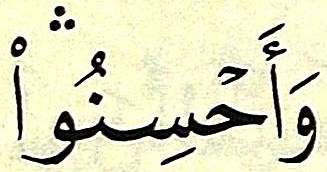 وَأَحۡسِنُواْۛ